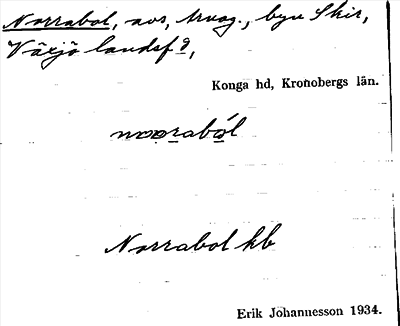 Norrabol, avs, Urvag., byn Skir,
Växjö landsf g,
Konga hd, Kronobergs län.
nooraból
Norrabol kb
Erik Johannesson 1934.